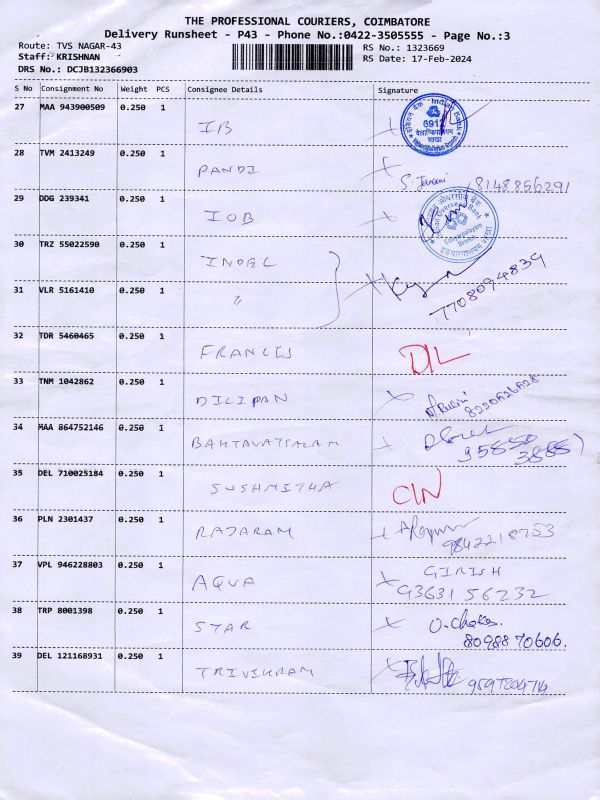 THE PROFESSIONAL COURIERS, COIMBATORE
Delivery Runsheet - P43 - Phone No.:0422-3505555 - Page No.:3
Route: TVS NAGAR-43 RS No.: 1323669
Staff: KRISHNAN RS Date: 17-Feb-2024
DRS No.: DCJB132366903
S No Consignment No Weight PCS Consignee Details Signature
27 MAA 943900509 0.250 1
IB
6912
शाखा
28 TVM 2413249 0.250 1
PANDI
8148856291
29 DDG 239341 0.250 1
IOB
30 TRZ 55022590 0.250 1
INOEL
7708094839
31 VLR 5161410 0.250 1
"
32 TDR 5460465 0.250 1
FRANCIS DIL
33 TNM 1042862 0.250 1
DILIPAN
34 MAA 864752146 0.250 1
BAKTAVATSALAM
35 DEL 710025184 0.250 1
SUSHMITHA CIN
36 PLN 2301437 0.250 1
RAJARAM
9842218753
37 VPL 946228803 0.250 1
AQUA GIRISH
93631 56232
38 TRP 8001398 0.250 1
STAR
8098870606.
39 DEL 121168931 0.250 1
TRIVIKRAM